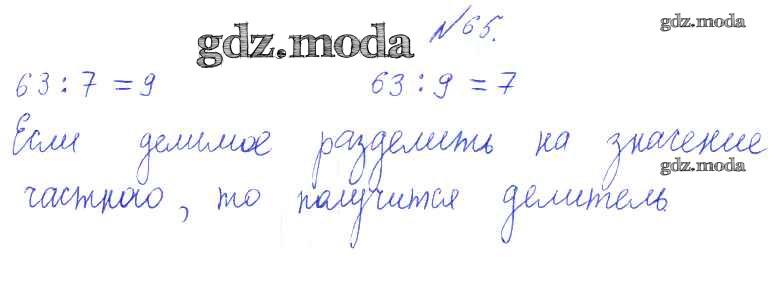 №65.
gdz.moda
gdz.moda
63 : 7 = 9 63 : 9 = 7
Если делимое разделить на значение
gdz.moda
частного, то получится делитель